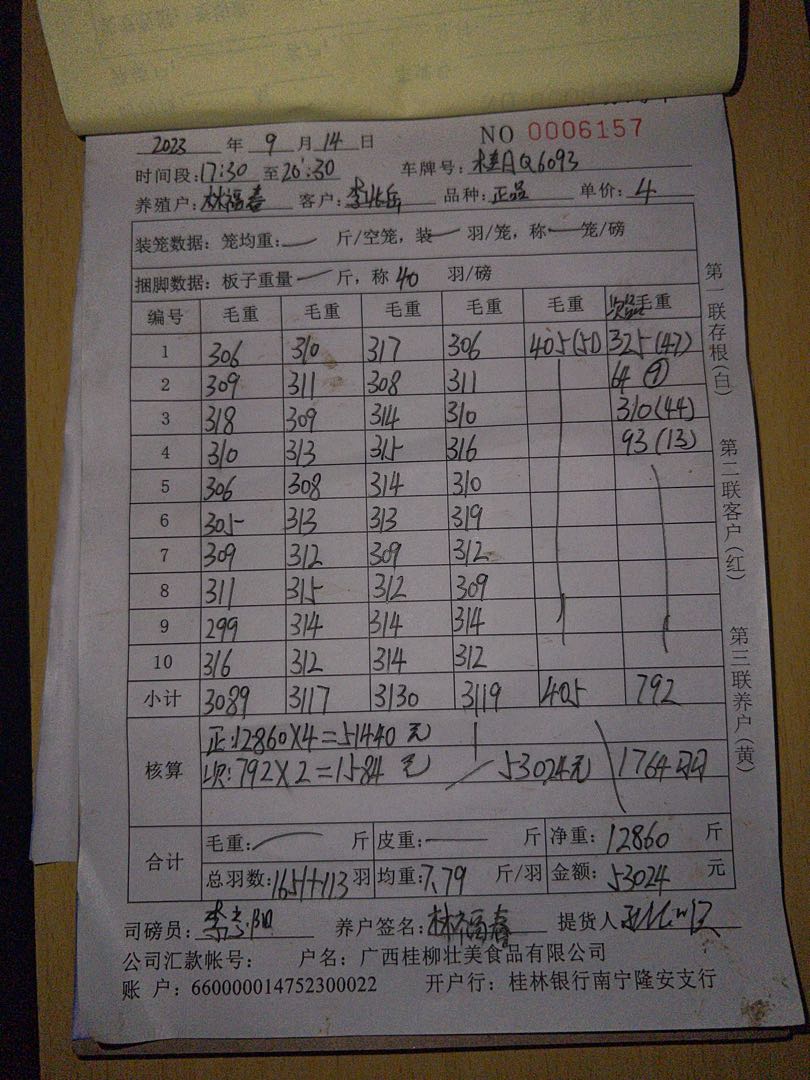 2023 年 9 月 14 日 NO 0006157
时间段:17:30 至20:30 车牌号:桂AQ6093
养殖户:林福春 客户:李 岳 品种:正品 单价:4
装笼数据:笼均重:— 斤/空笼,装— 羽/笼,称—笼/磅
捆脚数据:板子重量— 斤,称 40 羽/磅
编号 毛重 毛重 毛重 毛重 毛重 次品毛重
1 306 310 317 306 405(51) 325(47)
2 309 311 308 311 64 ⑨
3 318 309 314 310 310(44)
4 310 313 315 316 93(13)
5 306 308 314 310
6 305 313 313 319
7 309 312 309 312
8 311 315 312 309
9 299 314 314 314
10 316 312 314 312
小计 3089 3117 3130 3119 405 792
核算
正:12860×4=51440元
次:792×2=1584元 53024元 1764羽
合计
毛重:— 斤 皮重:— 斤 净重:12860 斤
总羽数:1651+113羽 均重:7.79 斤/羽 金额:53024 元
司磅员: 养户签名:林福春 提货人
公司汇款帐号: 户名:广西桂柳壮美食品有限公司
账 户:660000014752300022 开户行:桂林银行南宁隆安支行
第一联存根(白)
第二联客户(红)
第三联养户(黄)